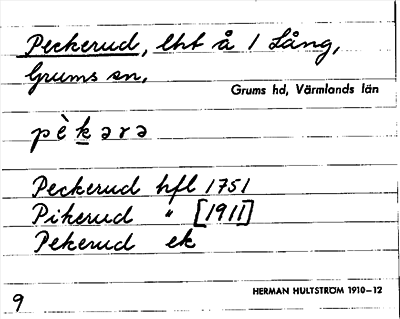 Peckerud, lht å 1 Lång,
Grums sn,
Grums hd, Värmlands län
pè k ə r ə
Peckerud hfl 1751
Pikerud " [1911]
Pekerud ek
HERMAN HULTSTRÖM 1910–12
9